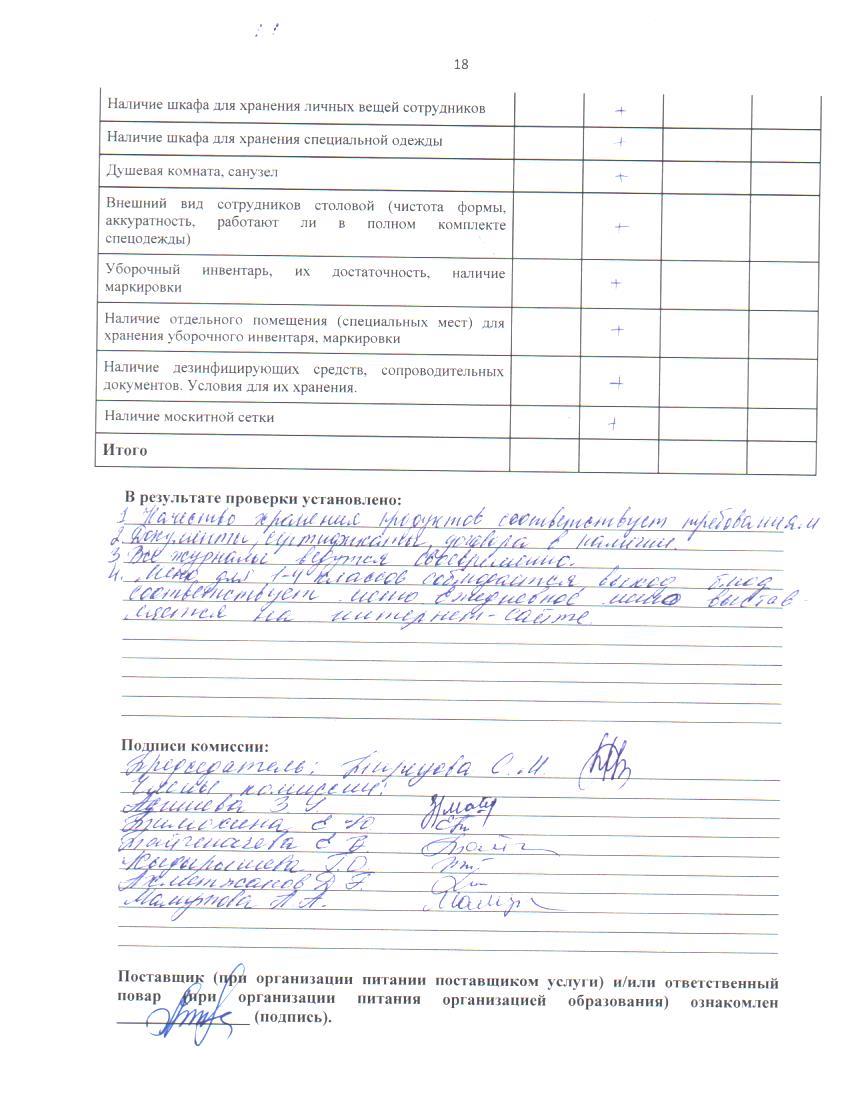 18
Наличие шкафа для хранения личных вещей сотрудников +
Наличие шкафа для хранения специальной одежды +
Душевая комната, санузел +
Внешний вид сотрудников столовой (чистота формы,
аккуратность, работают ли в полном комплекте +
спецодежды)
Уборочный инвентарь, их достаточность, наличие
маркировки +
Наличие отдельного помещения (специальных мест) для
хранения уборочного инвентаря, маркировки +
Наличие дезинфицирующих средств, сопроводительных
документов. Условия для их хранения. +
Наличие москитной сетки +
Итого
В результате проверки установлено:
1. Качество хранения продуктов соответствует требованиям
2. Документы, сертификаты, договора в наличии.
3. Все журналы ведутся своевременно.
4. Меню для 1-4 классов соблюдается выход блюд
соответствует меню ежедневное меню выстав-
ляется на интернет-сайте.
Подписи комиссии:
Председатель: С. М.
Члены комиссии:
З
Е Ю
Е
Г.О.
Ахметжанов
А.
Поставщик (при организации питании поставщиком услуги) и/или ответственный
повар (при организации питания организацией образования) ознакомлен
(подпись).